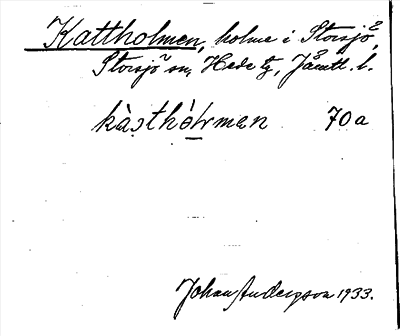 Kattholmen, holme i Storsjö,
Storsjö sn, Hede tg, Jämtl. l.
kàɔthóḷmen 70a
Johan Anderson 1933.